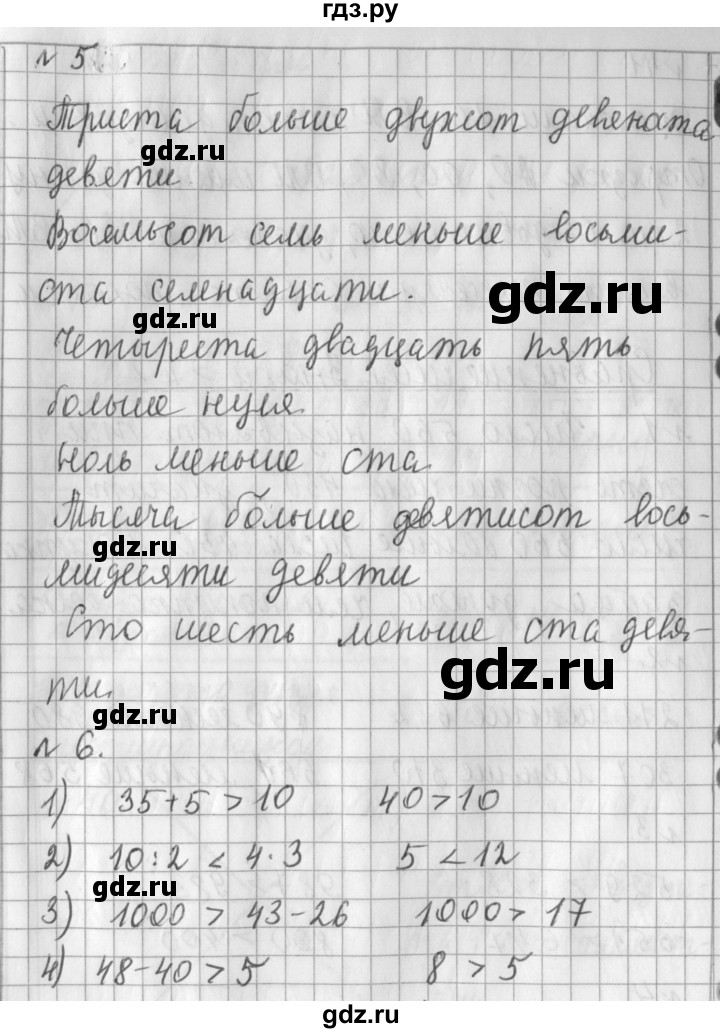 гдз.ру
№ 5.
Триста больше двухсот девеноста
девяти.
gdz.ru
Восемьсот семь меньше восьми-
ста семенадцати.
gdz.ru
gdz.ru
Четыреста двадцать пять
больше нуля.
Ноль меньше ста.
Тысяча больше девятисот вось-
gdz.ru
мидесяти девяти
Сто шесть меньше ста девя-
gdz.ru
ти.
gdz.ru
№ 6.
1) 35+5 > 10 40 > 10
2) 10:2 < 4·3 5 < 12
gdz.ru
3) 1000 > 43-26 1000 > 17
4) 48-40 > 5 8 > 5